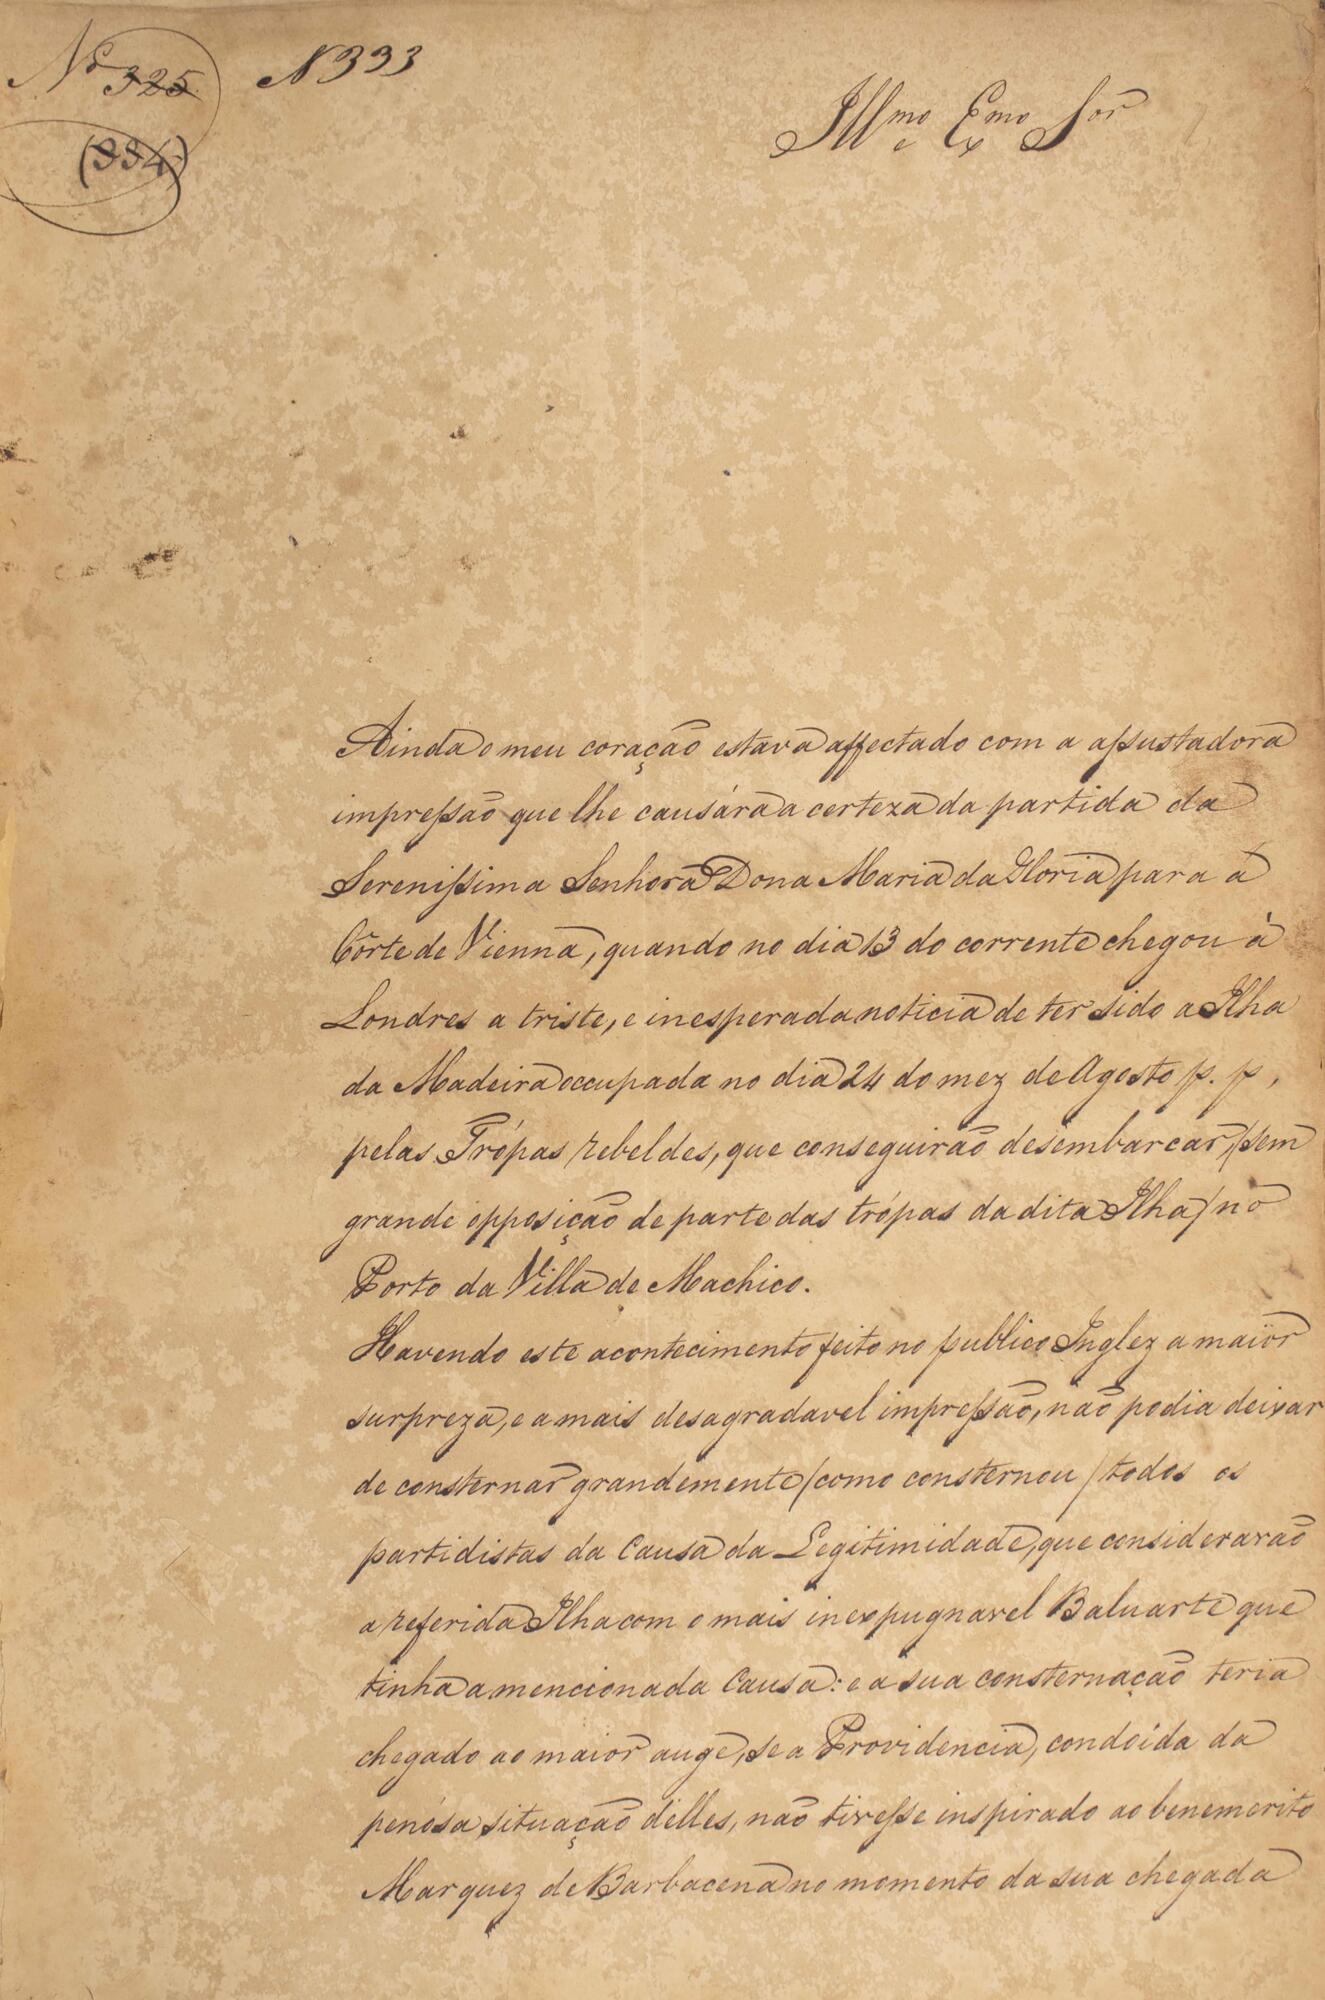 Nº 325 N 333
(334)
Illmo e Exmo Sor
Ainda o meu coração estava affectado com a assustadora
impressão que lhe causára a certeza da partida da
Serenissima Senhora Dona Maria da Gloria para a
Côrte de Vienna, quando no dia 13 do corrente chegou à
Londres a triste, e inesperada noticia de ter sido a Ilha
da Madeira occupada no dia 24 do mez de Agosto p. p,
pelas Trópas rebeldes, que conseguirão desembarcar /sem
grande opposição de parte das trópas da dita Ilha/ no
Porto da Villa de Machico.
Havendo este acontecimento feito no publico Inglez a maior
surpreza, e a mais desagradavel impressão, não podia deixar
de consternar grandemente /como consternou/ todos os
partidistas da Causa da Legitimidade, que considerarão
a referida Ilha com o mais inexpugnavel Baluarte que
tinha a mencionada Causa: e a sua consternação teria
chegado ao maior auge, se a Providencia, condoída da
penósa situação delles, não tivesse inspirado ao benemerito
Marquez de Barbacena no momento da sua chegada